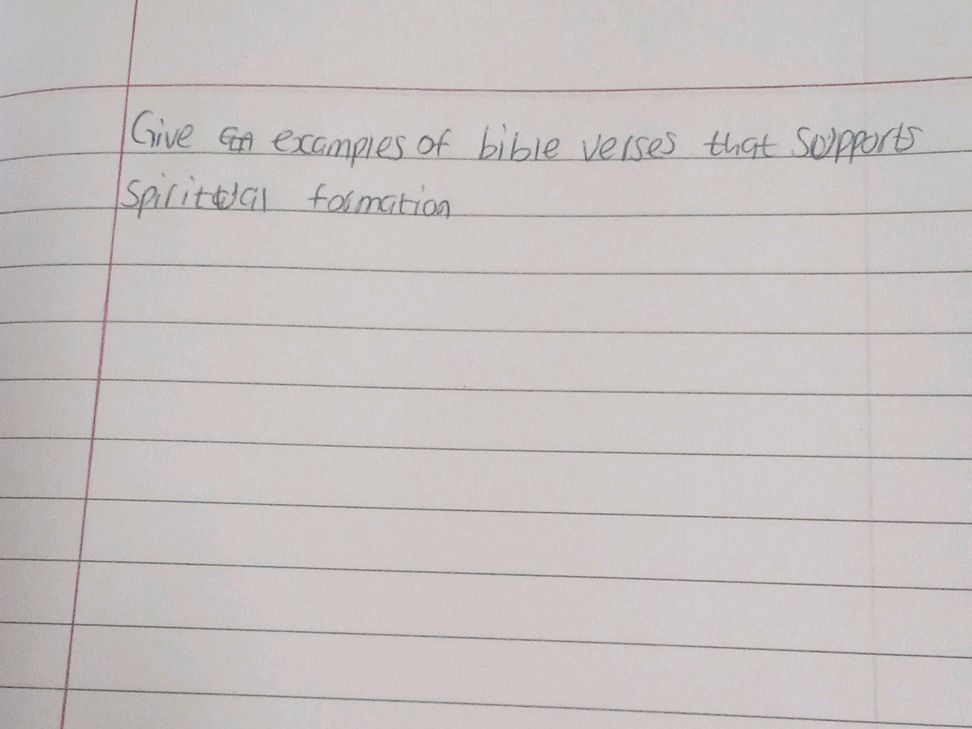 Give examples of bible verses that supports
spiritual formation